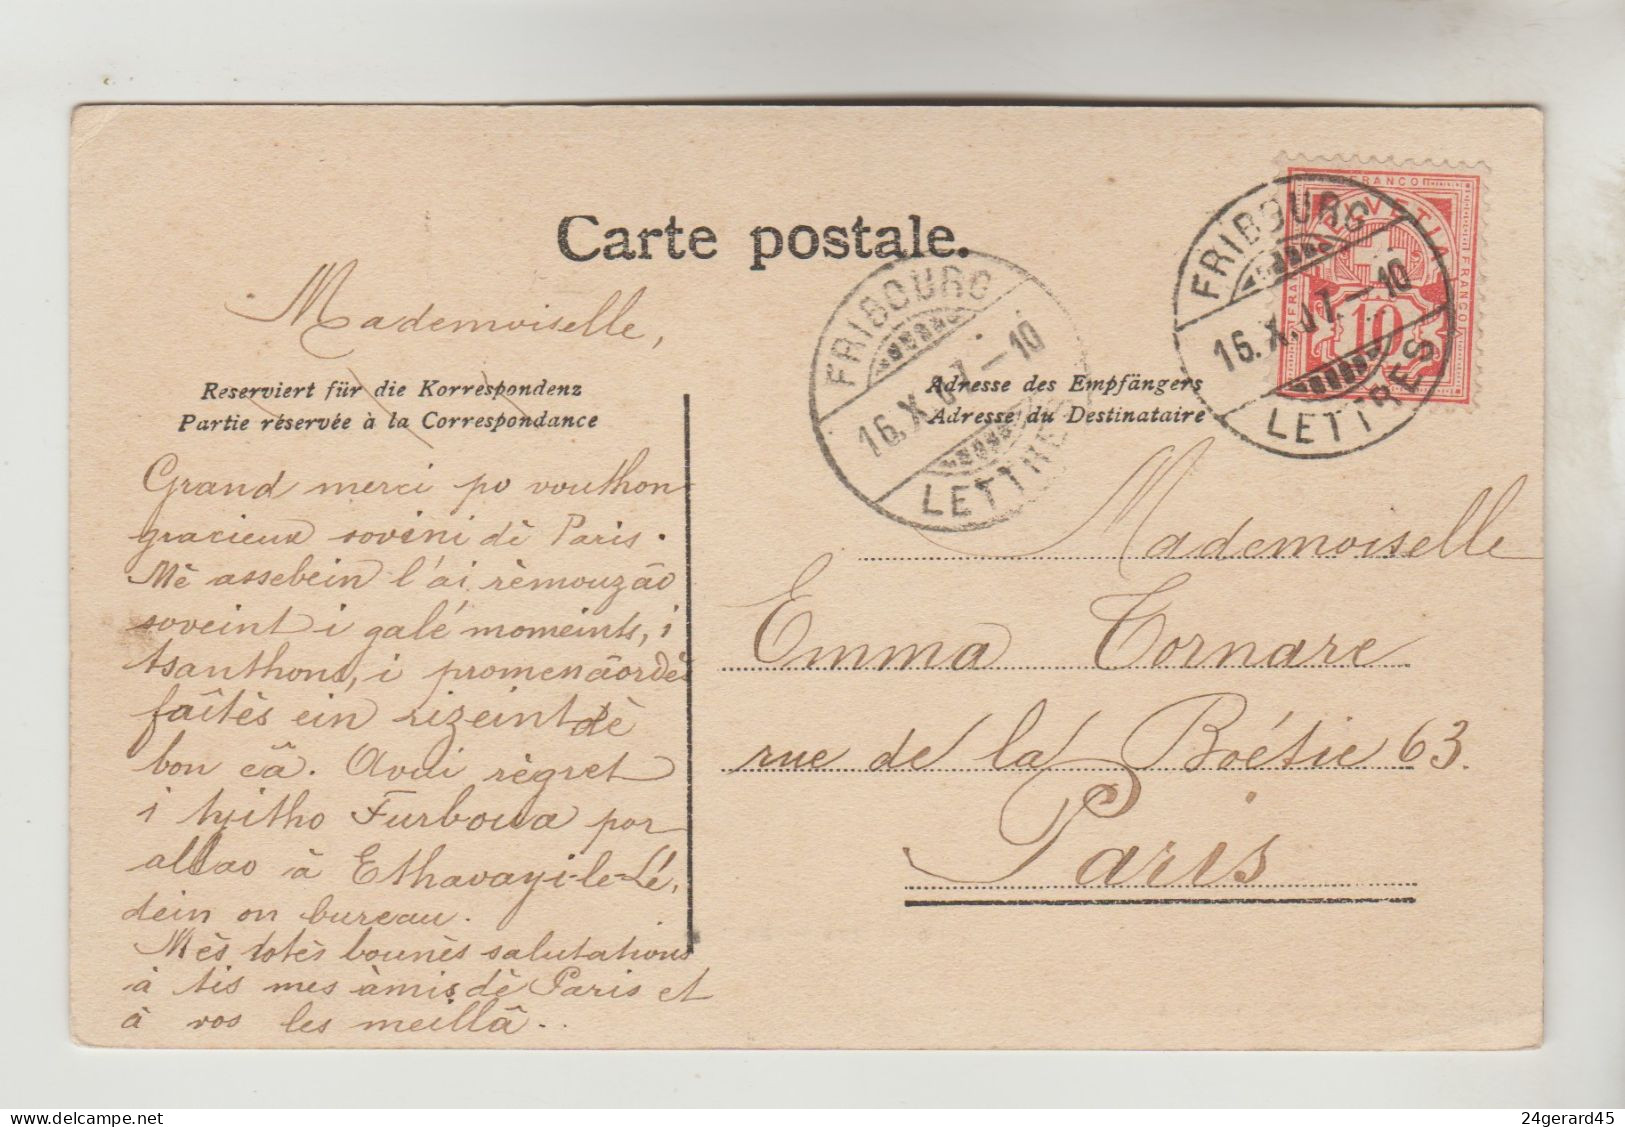 Carte postale.
Mademoiselle,
Reserviert für die Korrespondenz
Partie réservée à la Correspondance
Grand merci po vouthon
gracieux sovini dè Paris.
Mè assebein l'ai rèmouzâo
soveint i galé momeints, i
tsanthons, i promenâordès
faîtès ein rizeint dè
bon câ. Avui règret
i tyitho Furboua por
allao à Ethavayi-le-Lé,
dein on bureau.
Mès totès bounès salutations
à tis mes àmis dè Paris et
à vos les meillâ..
FRIBOURG
16.X.07.-10
LETTRES
FRIBOURG
16.X.07.-10
LETTRES
FRANCO
HELVETIA
FRANCO
FRANCO
10
Adresse des Empfängers
Adresse du Destinataire
Mademoiselle
Emma Tornare
rue de la Boétie 63.
Paris
24gerard45
delcampe.net